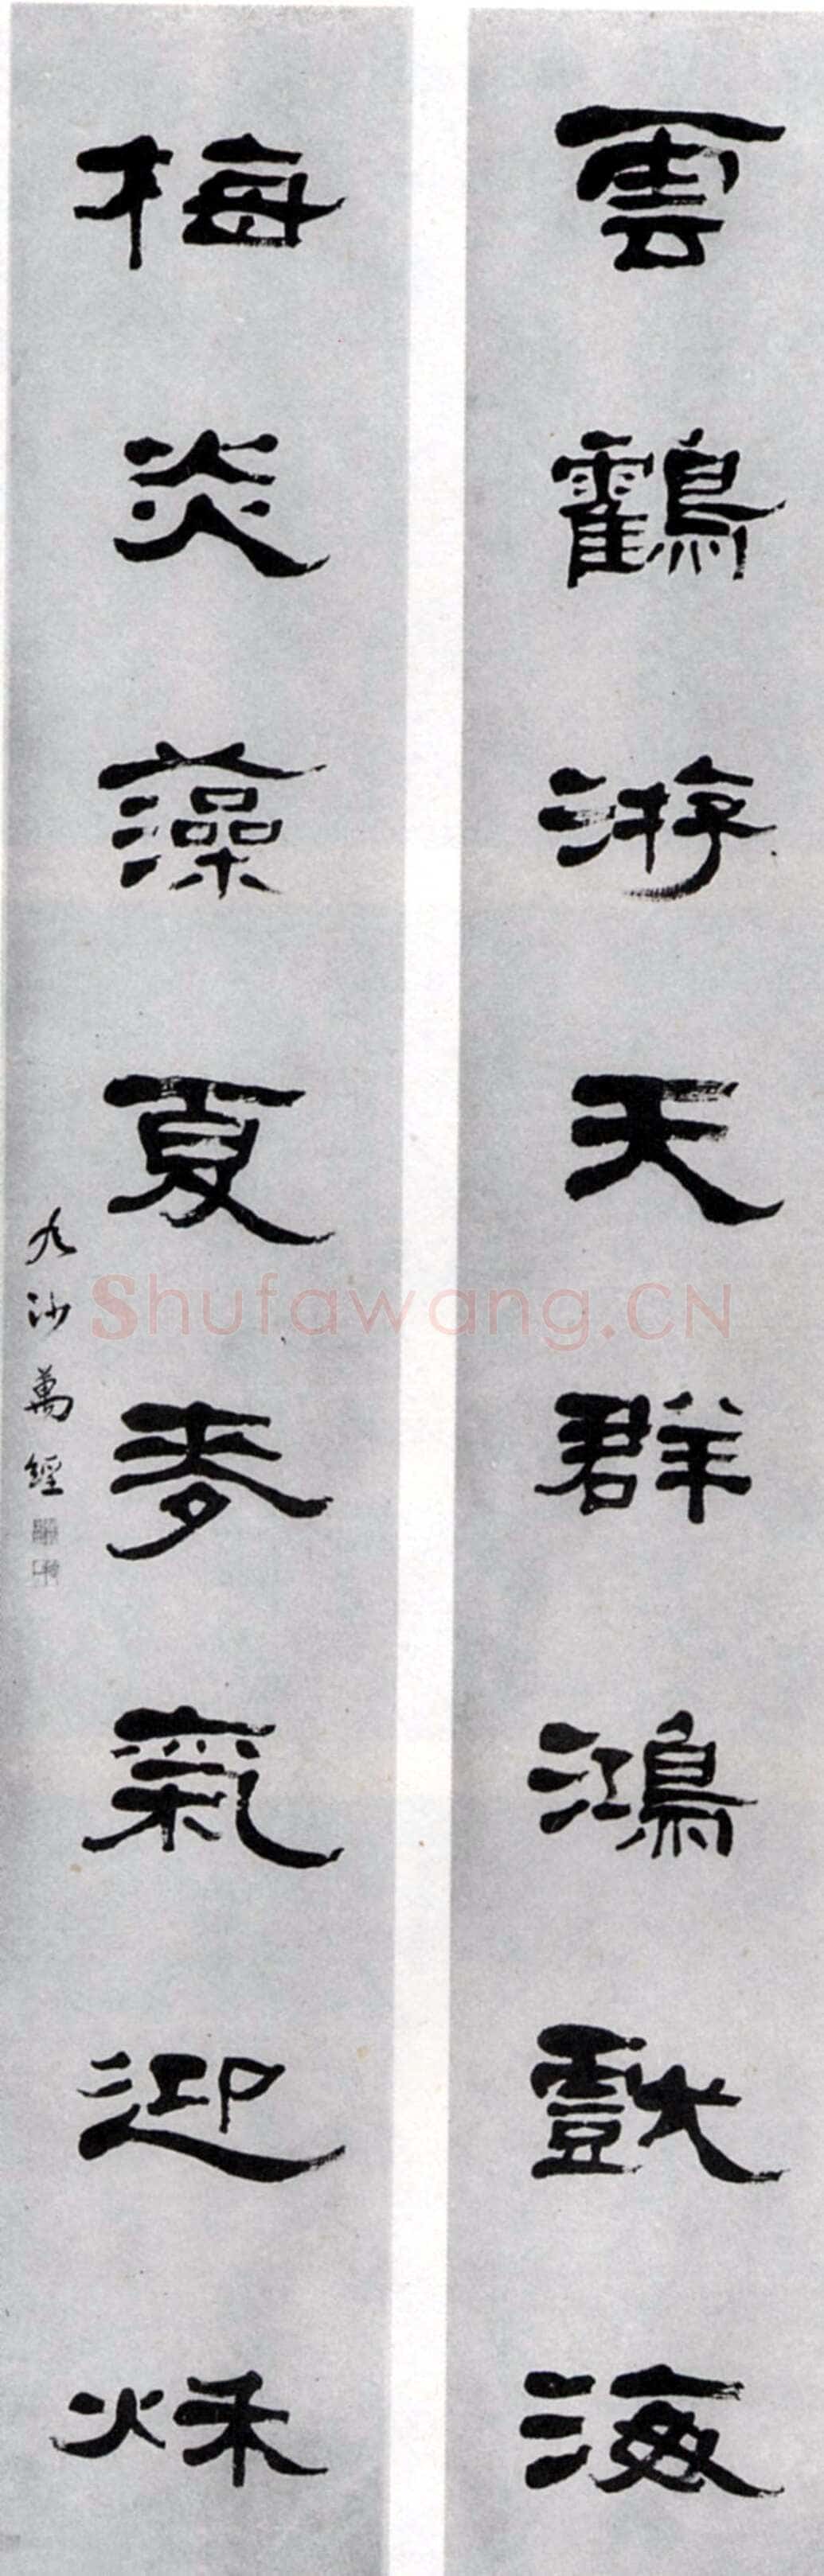 雲鶴游天群鴻戲海
梅炎藻夏麥氣迎秌
九沙萬經
Shufawang.CN